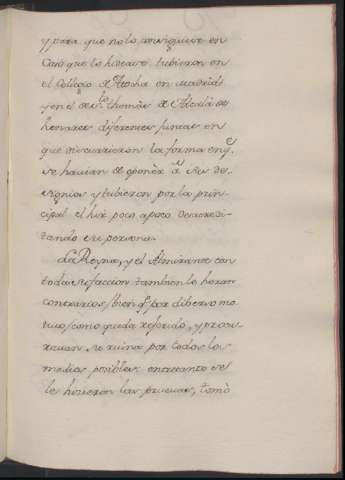 y para que no lo consiguiese en
Caso que lo hiciese, tubieron en
el Collegio de Atocha en Madrid
y en el de Sto. Thomás de Alcalá de
henares diferentes juntas en
que discurrieron la forma en q.e
se havian de oponér á sus de-
signios y tubieron por la prin-
cipal el hir poco apoco desacredi-
tando su persona.
La Reyna, y el Almirante con
toda su faccion tambien lo heran
contrarios, bien q.e por diberso mo
tivo, como queda referido, y procu
raban su ruina por todos los
medios posibles: entretanto se
le hicieron las pruevas, tomò